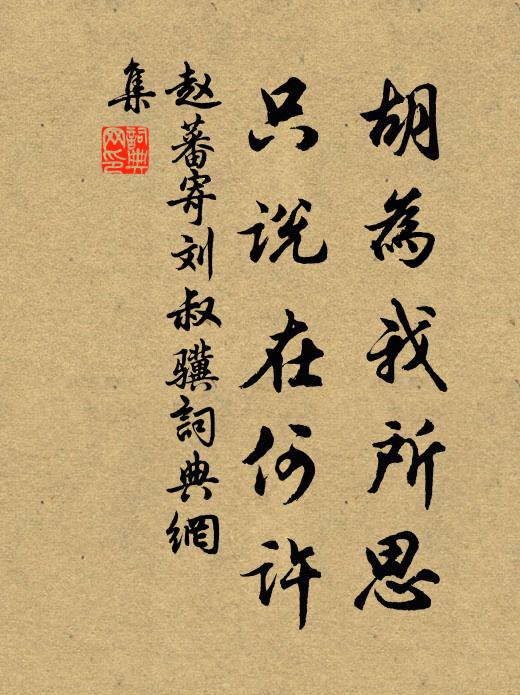 胡為我所思
只说在何许
赵蕃寄刘叔骥詞典網
集
詞典網印